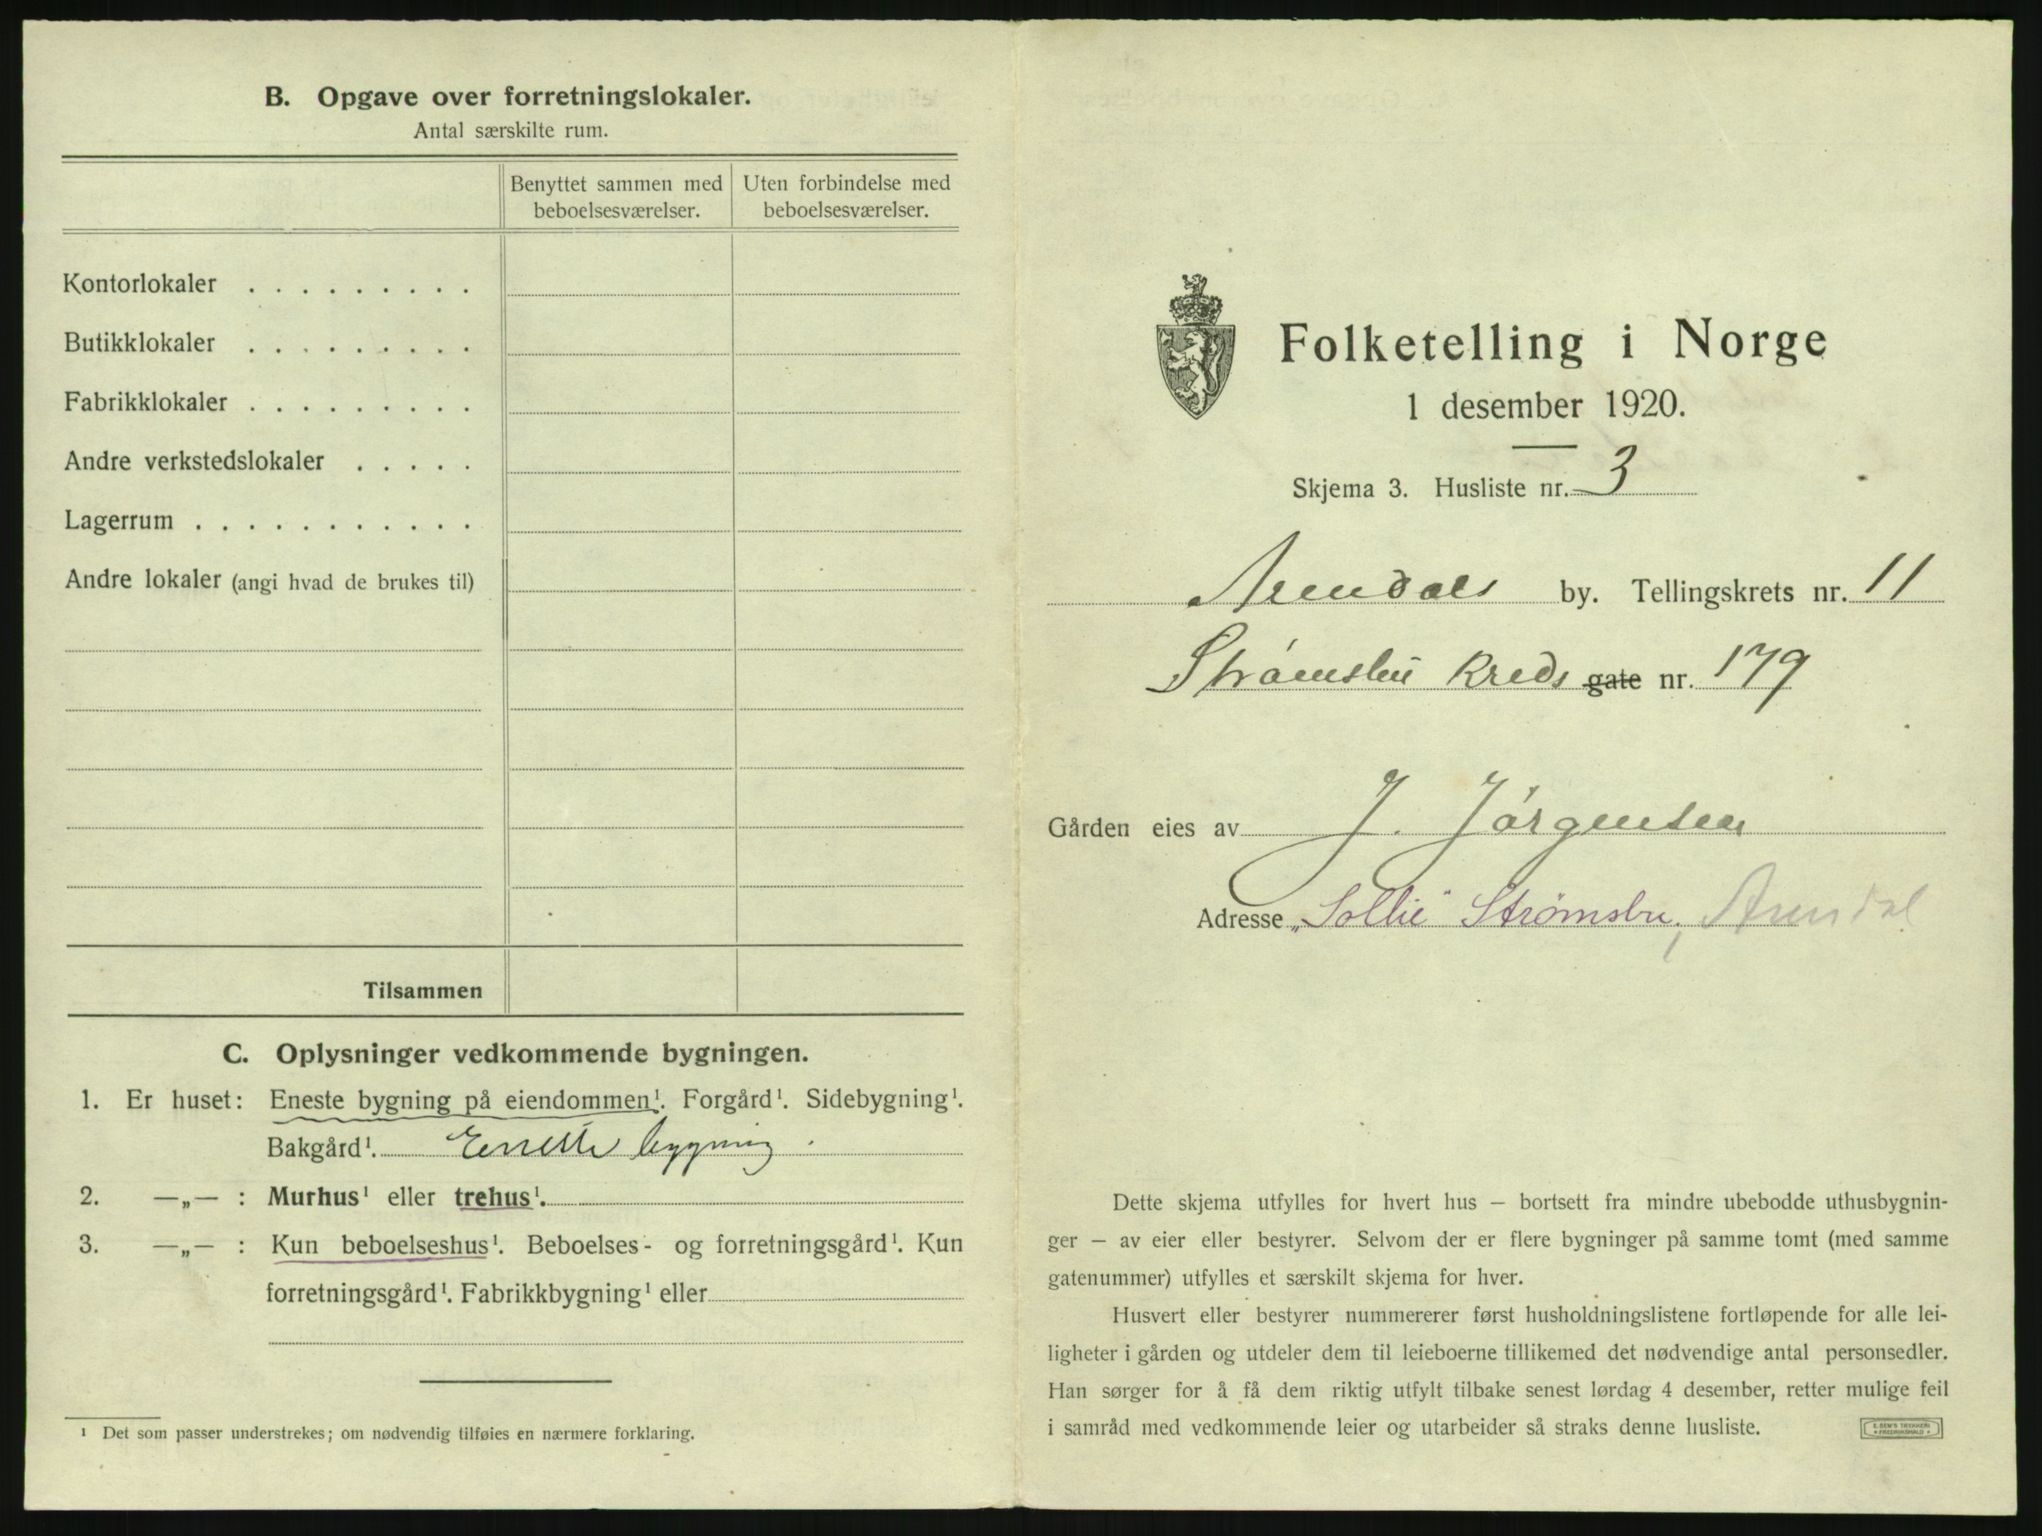 B. Opgave over forretningslokaler.
Antal særskilte rum.
Benyttet sammen med beboelsesværelser.
Uten forbindelse med beboelsesværelser.
Kontorlokaler . . . . . . . . .
Butikklokaler . . . . . . . . .
Fabrikklokaler . . . . . . . . .
Andre verkstedslokaler . . . . .
Lagerrum . . . . . . . . . . .
Andre lokaler (angi hvad de brukes til)
Tilsammen
C. Oplysninger vedkommende bygningen.
1. Er huset: Eneste bygning på eiendommen¹. Forgård¹. Sidebygning¹.
Bakgård¹. Eneste bygning.
2. —„— : Murhus¹ eller trehus¹.
3. —„— : Kun beboelseshus¹. Beboelses- og forretningsgård¹. Kun
forretningsgård¹. Fabrikkbygning¹ eller
¹ Det som passer understrekes; om nødvendig tilføies en nærmere forklaring.
Folketelling i Norge
1 desember 1920.
Skjema 3. Husliste nr. 3
Arendals by. Tellingskrets nr. 11
Strømsbu Kreds gate nr. 179
Gården eies av J. Jørgensen
Adresse „Sollie" Strømsbu, Arendal
Dette skjema utfylles for hvert hus — bortsett fra mindre ubebodde uthusbygnin-
ger — av eier eller bestyrer. Selvom der er flere bygninger på samme tomt (med samme
gatenummer) utfylles et særskilt skjema for hver.
Husvert eller bestyrer nummererer først husholdningslistene fortløpende for alle lei-
ligheter i gården og utdeler dem til leieboerne tillikemed det nødvendige antal personsedler.
Han sørger for å få dem riktig utfylt tilbake senest lørdag 4 desember, retter mulige feil
i samråd med vedkommende leier og utarbeider så straks denne husliste.
E. SEM'S TRYKKERI
FREDRIKSHALD